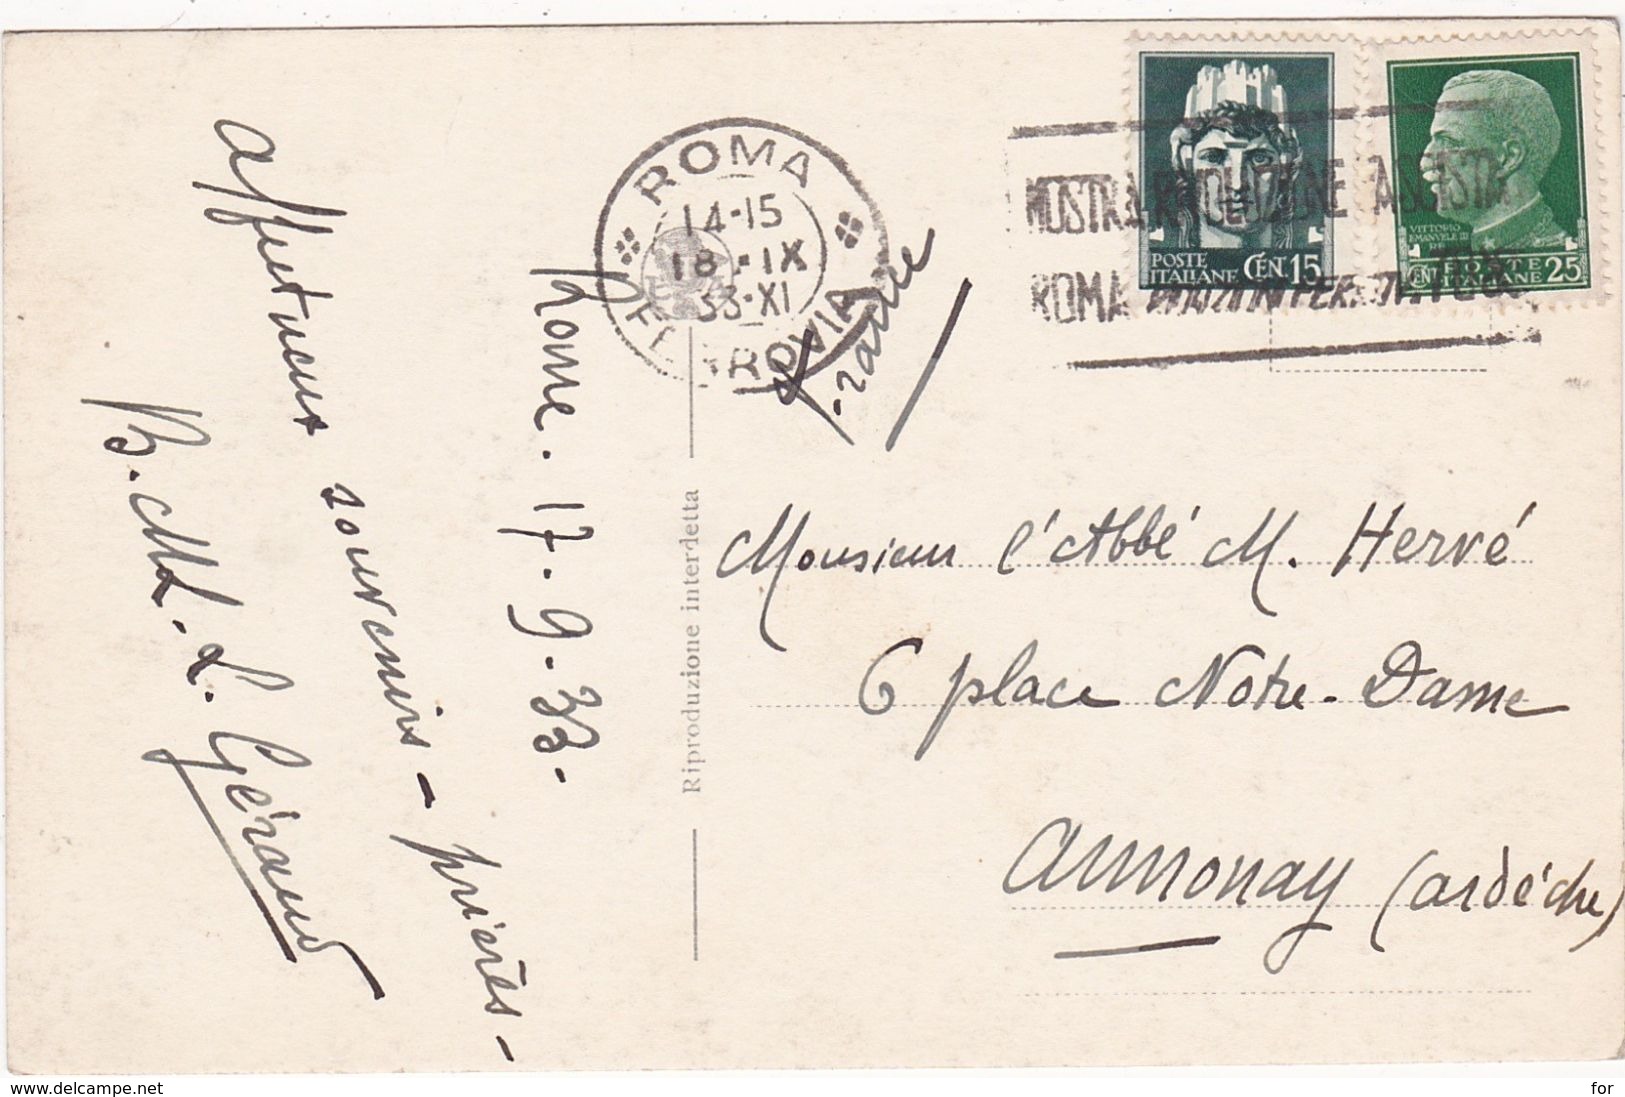 ROMA
14-15
18.IX
33-XI
FERROVIA
MOSTRA RIVOLUZIONE FASCISTA
ROMA
POSTE
ITALIANE CEN. 15
VITTORIO
EMANUELE III
RE
POSTE
CENT ITALIANE 25
Rome. 17-9-33-
affectueux souvenirs - prières -
B. M. L. Géraud
Riproduzione interdetta
France
Monsieur l'Abbé M. Hervé
6 place Notre-Dame
Annonay (Ardèche)
www.delcampe.net
for